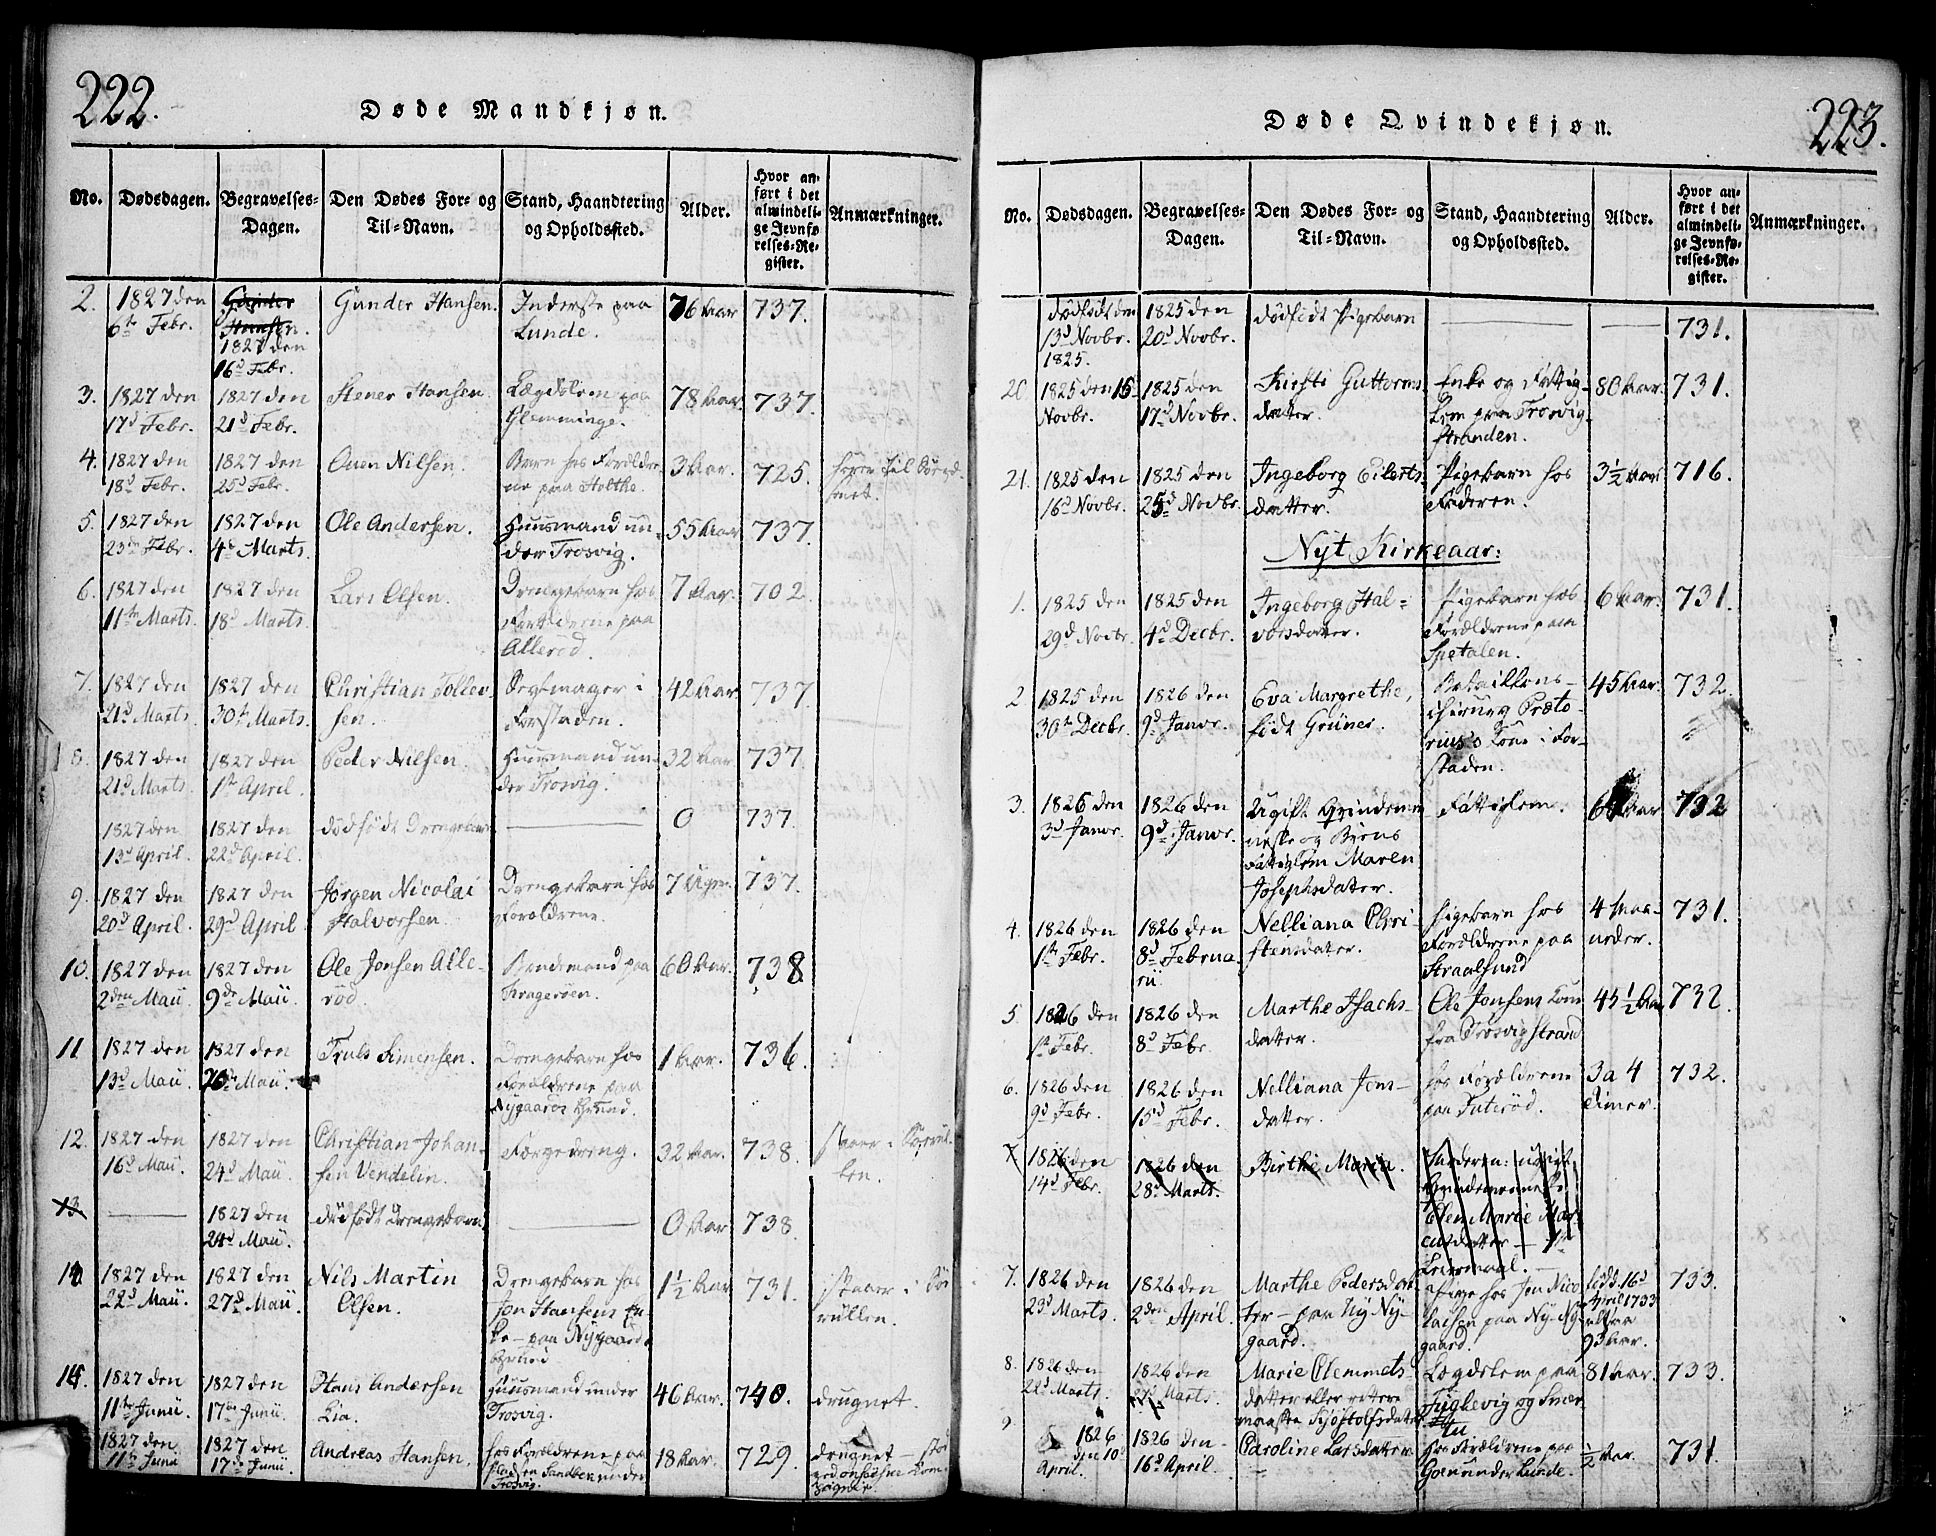 222.
Døde Mandkjøn.
No.
Dødsdagen.
Begravelses-
Dagen.
Den Dødes For- og
Til-Navn.
Stand, Haandtering
og Opholdssted.
Alder.
Hvor an-
ført i det
almindeli-
ge Jevnfø-
relses-Re-
gister.
Anmærkninger.
2. 1827 den 6te Febr. 1827 den 16d Febr. Gunder Hansen. Inderste paa Lunde. 76 Aar 737.
3. 1827 den 17d Febr. 1827 den 21d Febr. Stener Hansen. Lægdslem paa Glemminge. 78 Aar. 737.
4. 1827 den 18d Febr. 1827 den 25d Febr. Ouen Nilsen. Barn hos Forældre- ne paa Holthe. 3 Aar. 725.
5. 1827 den 23de Febr. 1827 den 4de Marts. Ole Andersen. Huusmand un- der Trosvig. 55 Aar 737.
6. 1827 den 11te Marts. 1827 den 18d Marts. Lars Olsen. Drengebarn hos Forældrene paa Allerød. 7 Aar. 702.
7. 1827 den 21d Marts. 1827 den 30te Marts. Christian Tollev- sen. i Forstaden. 42 Aar 737.
8. 1827 den 21d Marts. 1827 den 1ste April. Peder Nilsen. Huusmand un- der Trosvig. 32 Aar. 737.
1827 den 13d April. 1827 den 22d April. dødfødt Drengebarn 0 737.
9. 1827 den 20d April. 1827 den 29d April. Jørgen Nicolai Halvorsen. Drengebarn hos Forældrene. 7 Uger. 737.
10. 1827 den 2den Maii. 1827 den 9de Maii. Ole Jonsen Alle- rød. Bondemand paa Kragerøen. 60 Aar. 738
11 1827 den 13d Maii. 1827 den Maii. Truls Simensen. Drengebarn hos Forældrene paa Nygaards Grund. 1 Aar. 736.
12. 1827 den 16d Maii. 1827 den 24d Maii. Christian Johan- sen Vendelin. Farvedreng. 32 Aar. 738. staaer i
13. 1827 den 24d Maii. dødfødt Drengebarn 0 Aar 738.
14 1827 den 22d Maii. 1827 den 27d Maii. Nils Martin Olsen. Drengebarn hos Jon Hansens En- ke - paa Nygaards Grund 1½ Aar 731. staaer i Sø- rullen.
15. 1827 den 11te Junii. 1827 den 17de Junii. Hans Andersen Lia. Huusmand under Trosvig. 46 Aar. 740. drugnet.
1827 den 11te Junii 1827 den 17de Junii. Andreas Hansen. hos Forældrene paa Sandbem under Trosvig. 18 Aar. 729. drugnet -
223.
Døde Qvindekjøn.
No.
Dødsdagen.
Begravelses-
Dagen.
Den Dødes For- og
Til-Navn.
Stand, Haandtering
og Opholdssted.
Alder.
Hvor an-
ført i det
almindeli-
ge Jevnfø-
relses-Re-
gister.
Anmærkninger.
dødfødt den 13d Novbr. 1825. 1825 den 20d Novbr. dødfødt Pigebarn 731.
20. 1825 den 15 Novbr. 1825 den 17d Novbr. Kirsti Guttorms- datter. Enke og Fattig- Lem paa Trosvig- stranden. 80 Aar. 731.
21. 1825 den 16d Novbr. 1825 den 25d Novbr. Ingeborg Eilerts- datter. Pigebarn hos Faderen. 3½ Aar 716.
Nyt Kirkeaar:
1. 1825 den 29d Novbr. 1825 den 4d Decbr. Ingeborg Hal- vorsdatter. Pigebarn hos Forældrene paa Spetalen. 6 Aar. 731.
2 1825 den 30te Decbr. 1826 den 9d Janvr. Eva Margrethe, født Grüner. Bataillons- chirurg Præto- rius's Kone i For- staden. 45 Aar. 732.
3. 1826 den 3d Janvr. 1826 den 9d Janvr. Ugift Qvindemen- neske og Byens Fattiglem Maren Josephsdatter. Fattiglem. Aar 732
4. 1826 den 1ste Febr. 1826 den 8d Februa- rii. Nelliana Chri- stensdatter. Pigebarn hos Forældrene paa Straalsund 4 Maa- neder. 731.
5. 1826 den 1st Febr. 1826 den 8d Febr. Marthe Isachs- datter. Ole Jensens Kone fra Trosvigstrand 45½ Aar 732.
6. 1826 den 9d Febr. 1826 den 15d Febr. Nelliana Jens- datter. hos Forældrene paa Puterød. 3 a 4 Timer. 732.
7 1826 den 14d Febr. 1826 den 28d Marts. Birthe Maria. Faderen: Elen Marie datter - Leiermaal.
7. 1826 den 23d Marts. 1826 den 2den April. Marthe Pedersdat- ter - paa Ny Ny- gaard. hos Jon Nico- laisen paa Ny-Ny- gaard. født 16d April 1733 altsaa 93 Aar. 733.
8. 1826 den 22d Marts. 1826 den Marts. Marie Clemmets- datter eller rettere maaske Kjøstolfsdatter Lægdslem paa Fuglevig og 81 Aar. 733.
9 1826 den 10d April. 1826 den 16d April. Caroline Larsdatter hos Forældrene paa under Lunde. ½ Aar. 731.